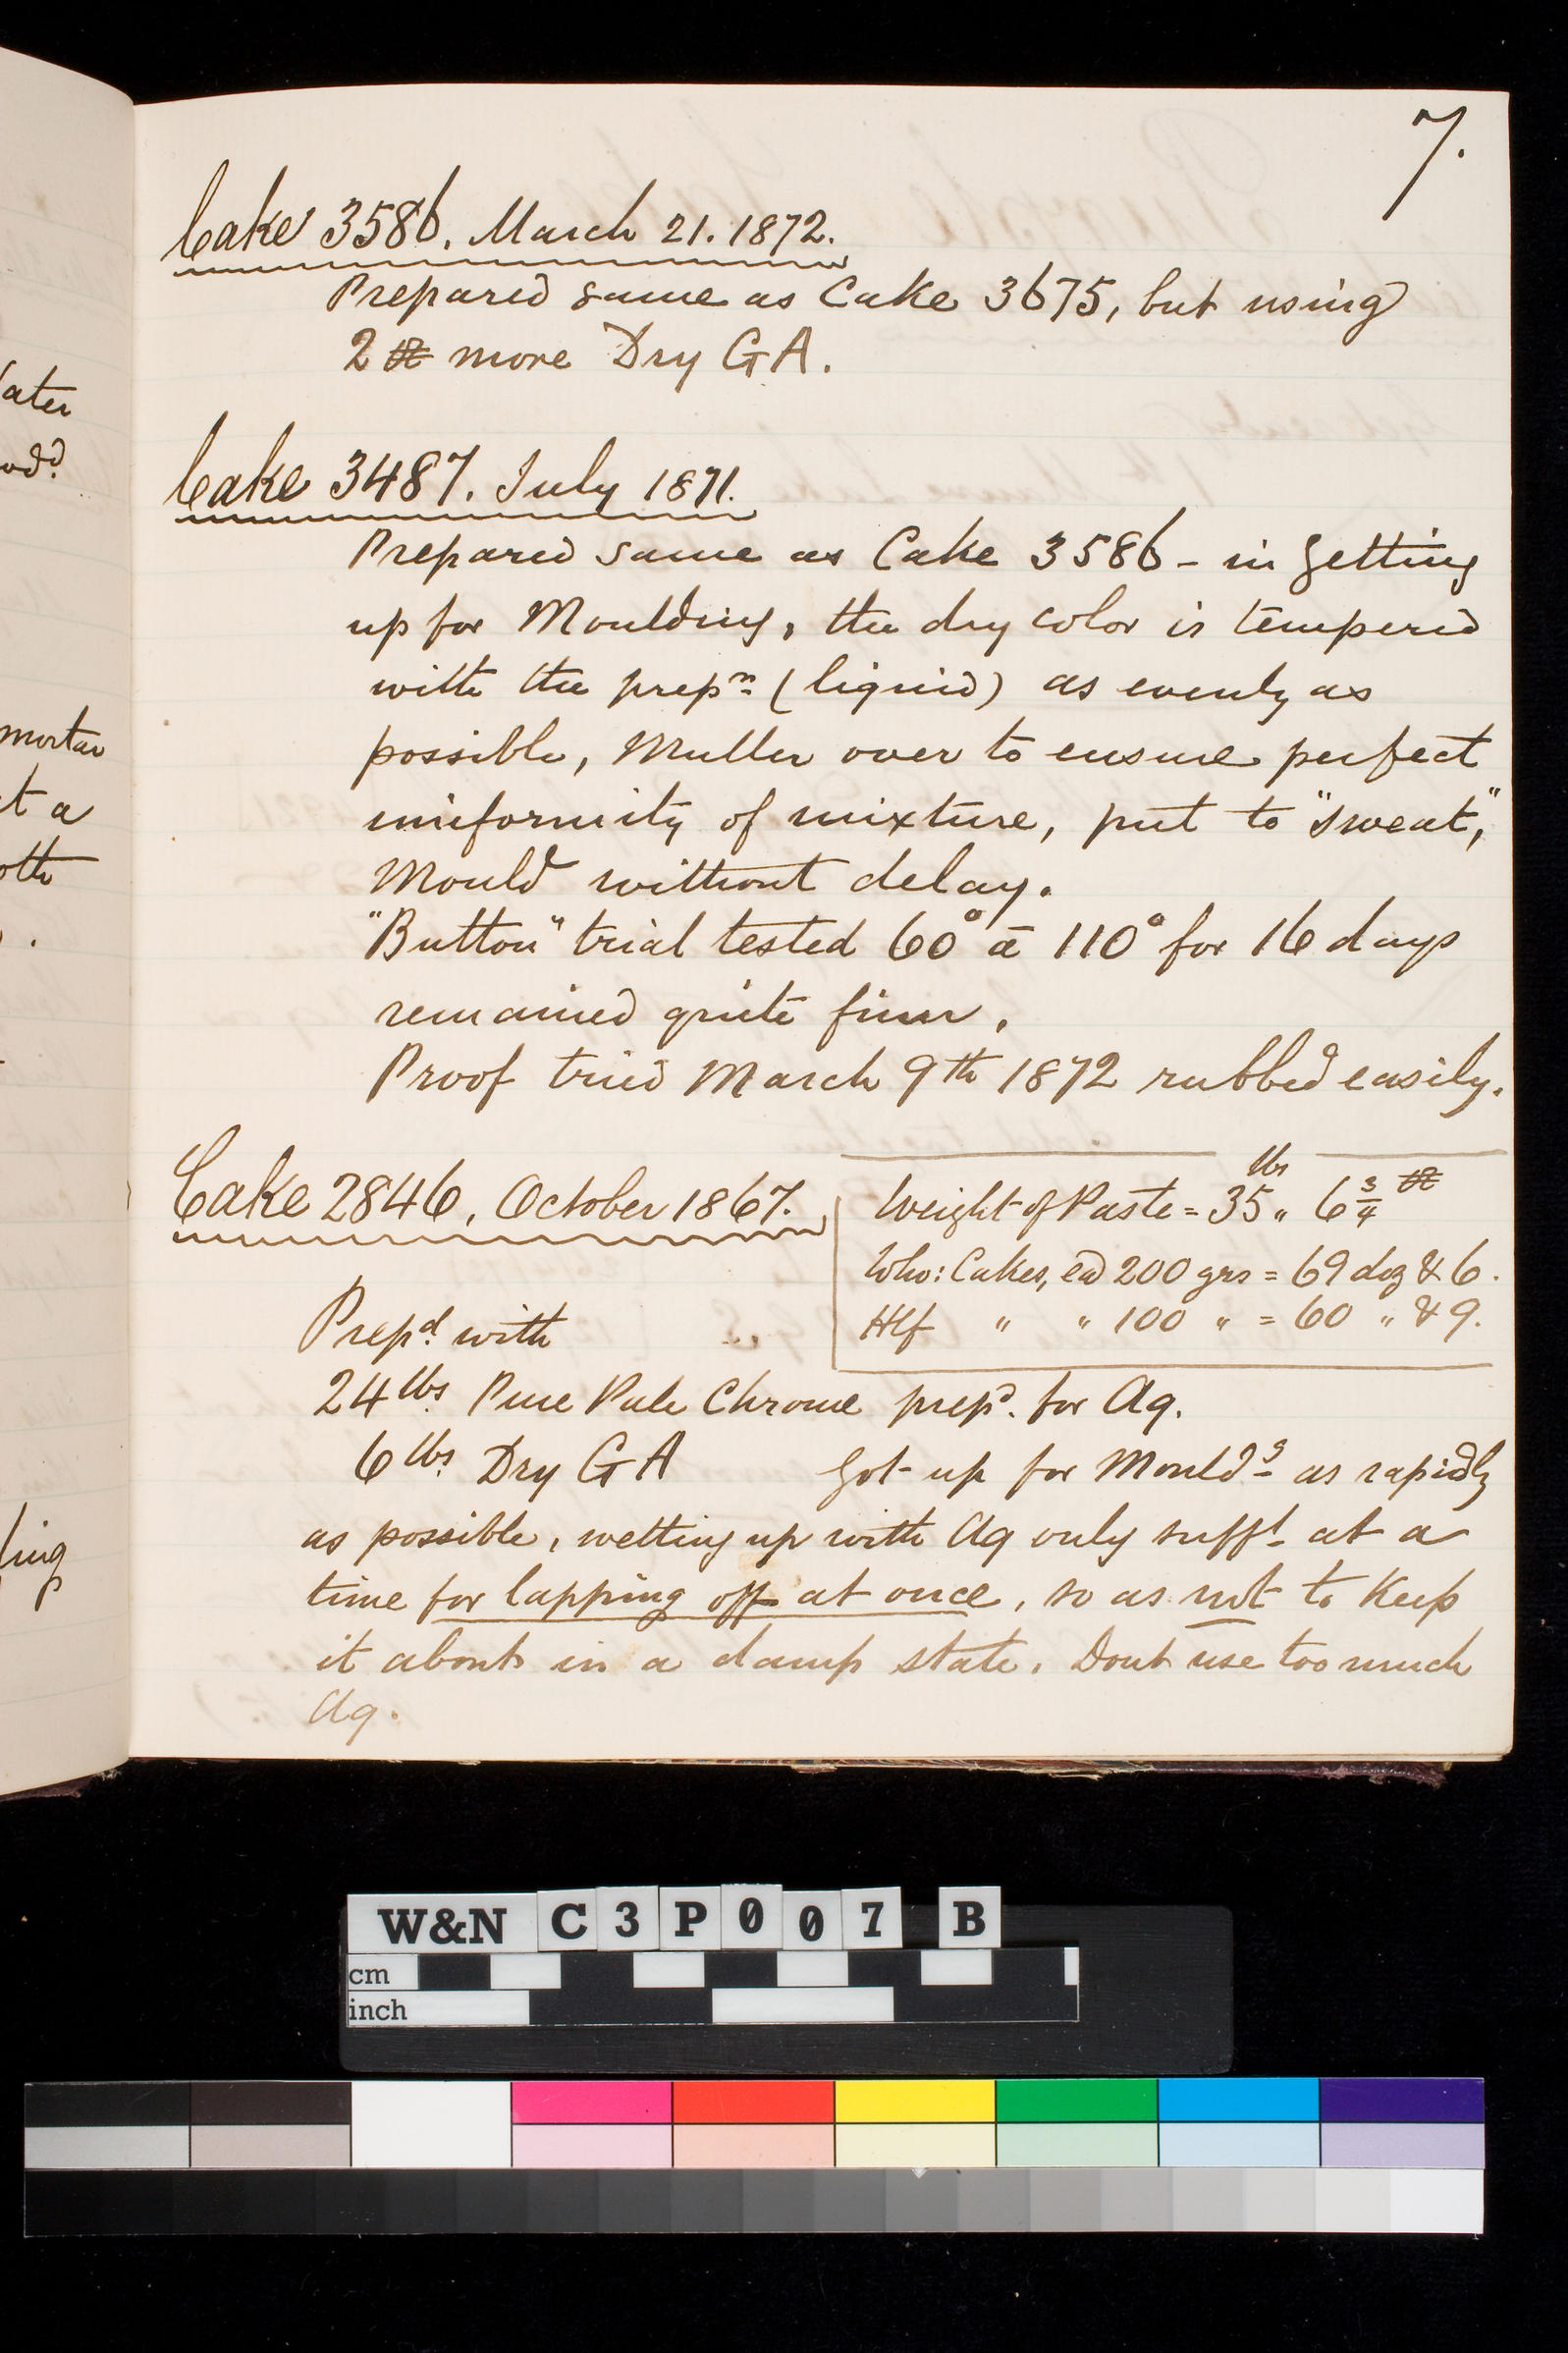 7.
Cake 3586. March 21. 1872.
Prepared same as Cake 3675, but using
2 ℔ more Dry GA.
Cake 3487. July 1871.
Prepared same as Cake 3586 - in getting
up for Moulding, the dry color is tempered
with the prepn (liquid) as evenly as
possible, Muller over to ensure perfect
uniformity of mixture, put to "sweat,"
Mould without delay.
"Button" trial tested 60° à 110° for 16 days
remained quite firm.
Proof tried March 9th 1872 rubbed easily.
Cake 2846, October 1867.
Weight of Paste = 35 lbs " 6 3/4 ℔
Who: Cakes, ea 200 grs = 69 doz & 6.
Hlf " " 100 " = 60 " & 9.
Prepd with
24 lbs. Pure Pale Chrome prepd. for Aq.
6 lbs. Dry GA Got up for Mouldg as rapidly
as possible, wetting up with Aq only sufft at a
time for lapping off at once, so as not to keep
it about in a damp state. Dont use too much
Aq.
ater
odd.
mortar
t a
oth
ling
W&N C3P007 B
cm
inch